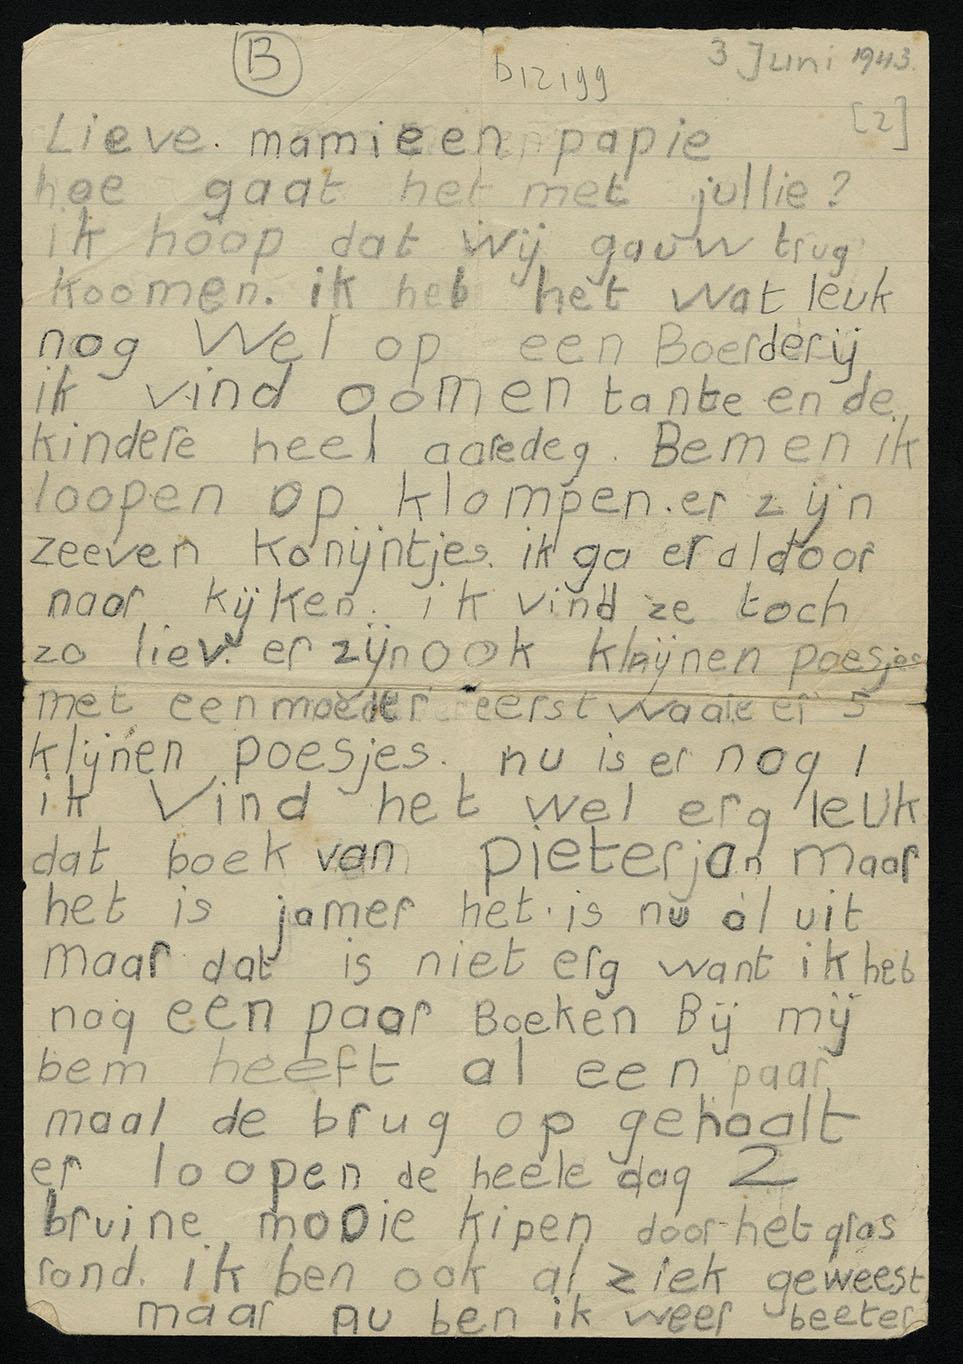 B
b12199
3 Juni 1943.
[2]
Lieve. mamie en papie
hoe gaat het met jullie?
ik hoop dat wij gauw trug
koomen. ik heb het wat leuk
nog wel op een Boerderij
ik vind oom en tante en de
kindere heel aaredeg. Bem en ik
loopen op klompen. er zijn
zeeven konijntjes. ik ga er aldoor
naar kijken. ik vind ze toch
zo liev. er zijn ook klijnen poesjes
met een moeder eerst waare er 5
klijnen poesjes. nu is er nog 1
ik vind het wel erg leuk
dat boek van pieterjan maar
het is jamer het is nu al uit
maar dat is niet erg want ik heb
nog een paar Boeken Bij mij
bem heeft al een paar
maal de brug op gehaalt
er loopen de heele dag 2
bruine mooie kipen door het gras
rond. ik ben ook al ziek geweest
maar nu ben ik weer beeter